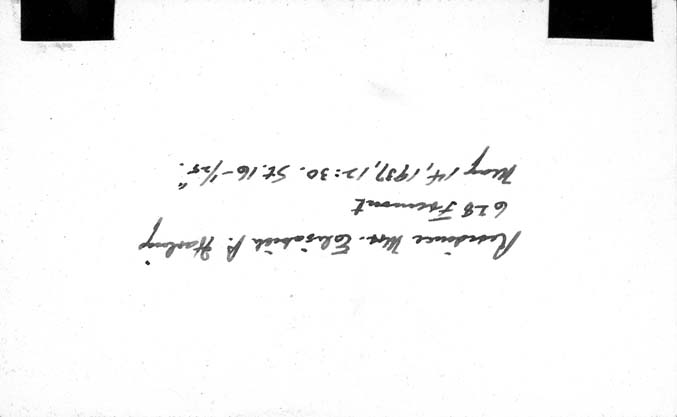 Residence Mrs. Elizabeth P. Harling
628 Fremont
May 14, 1937, 12:30. St. 16 - 1/25".